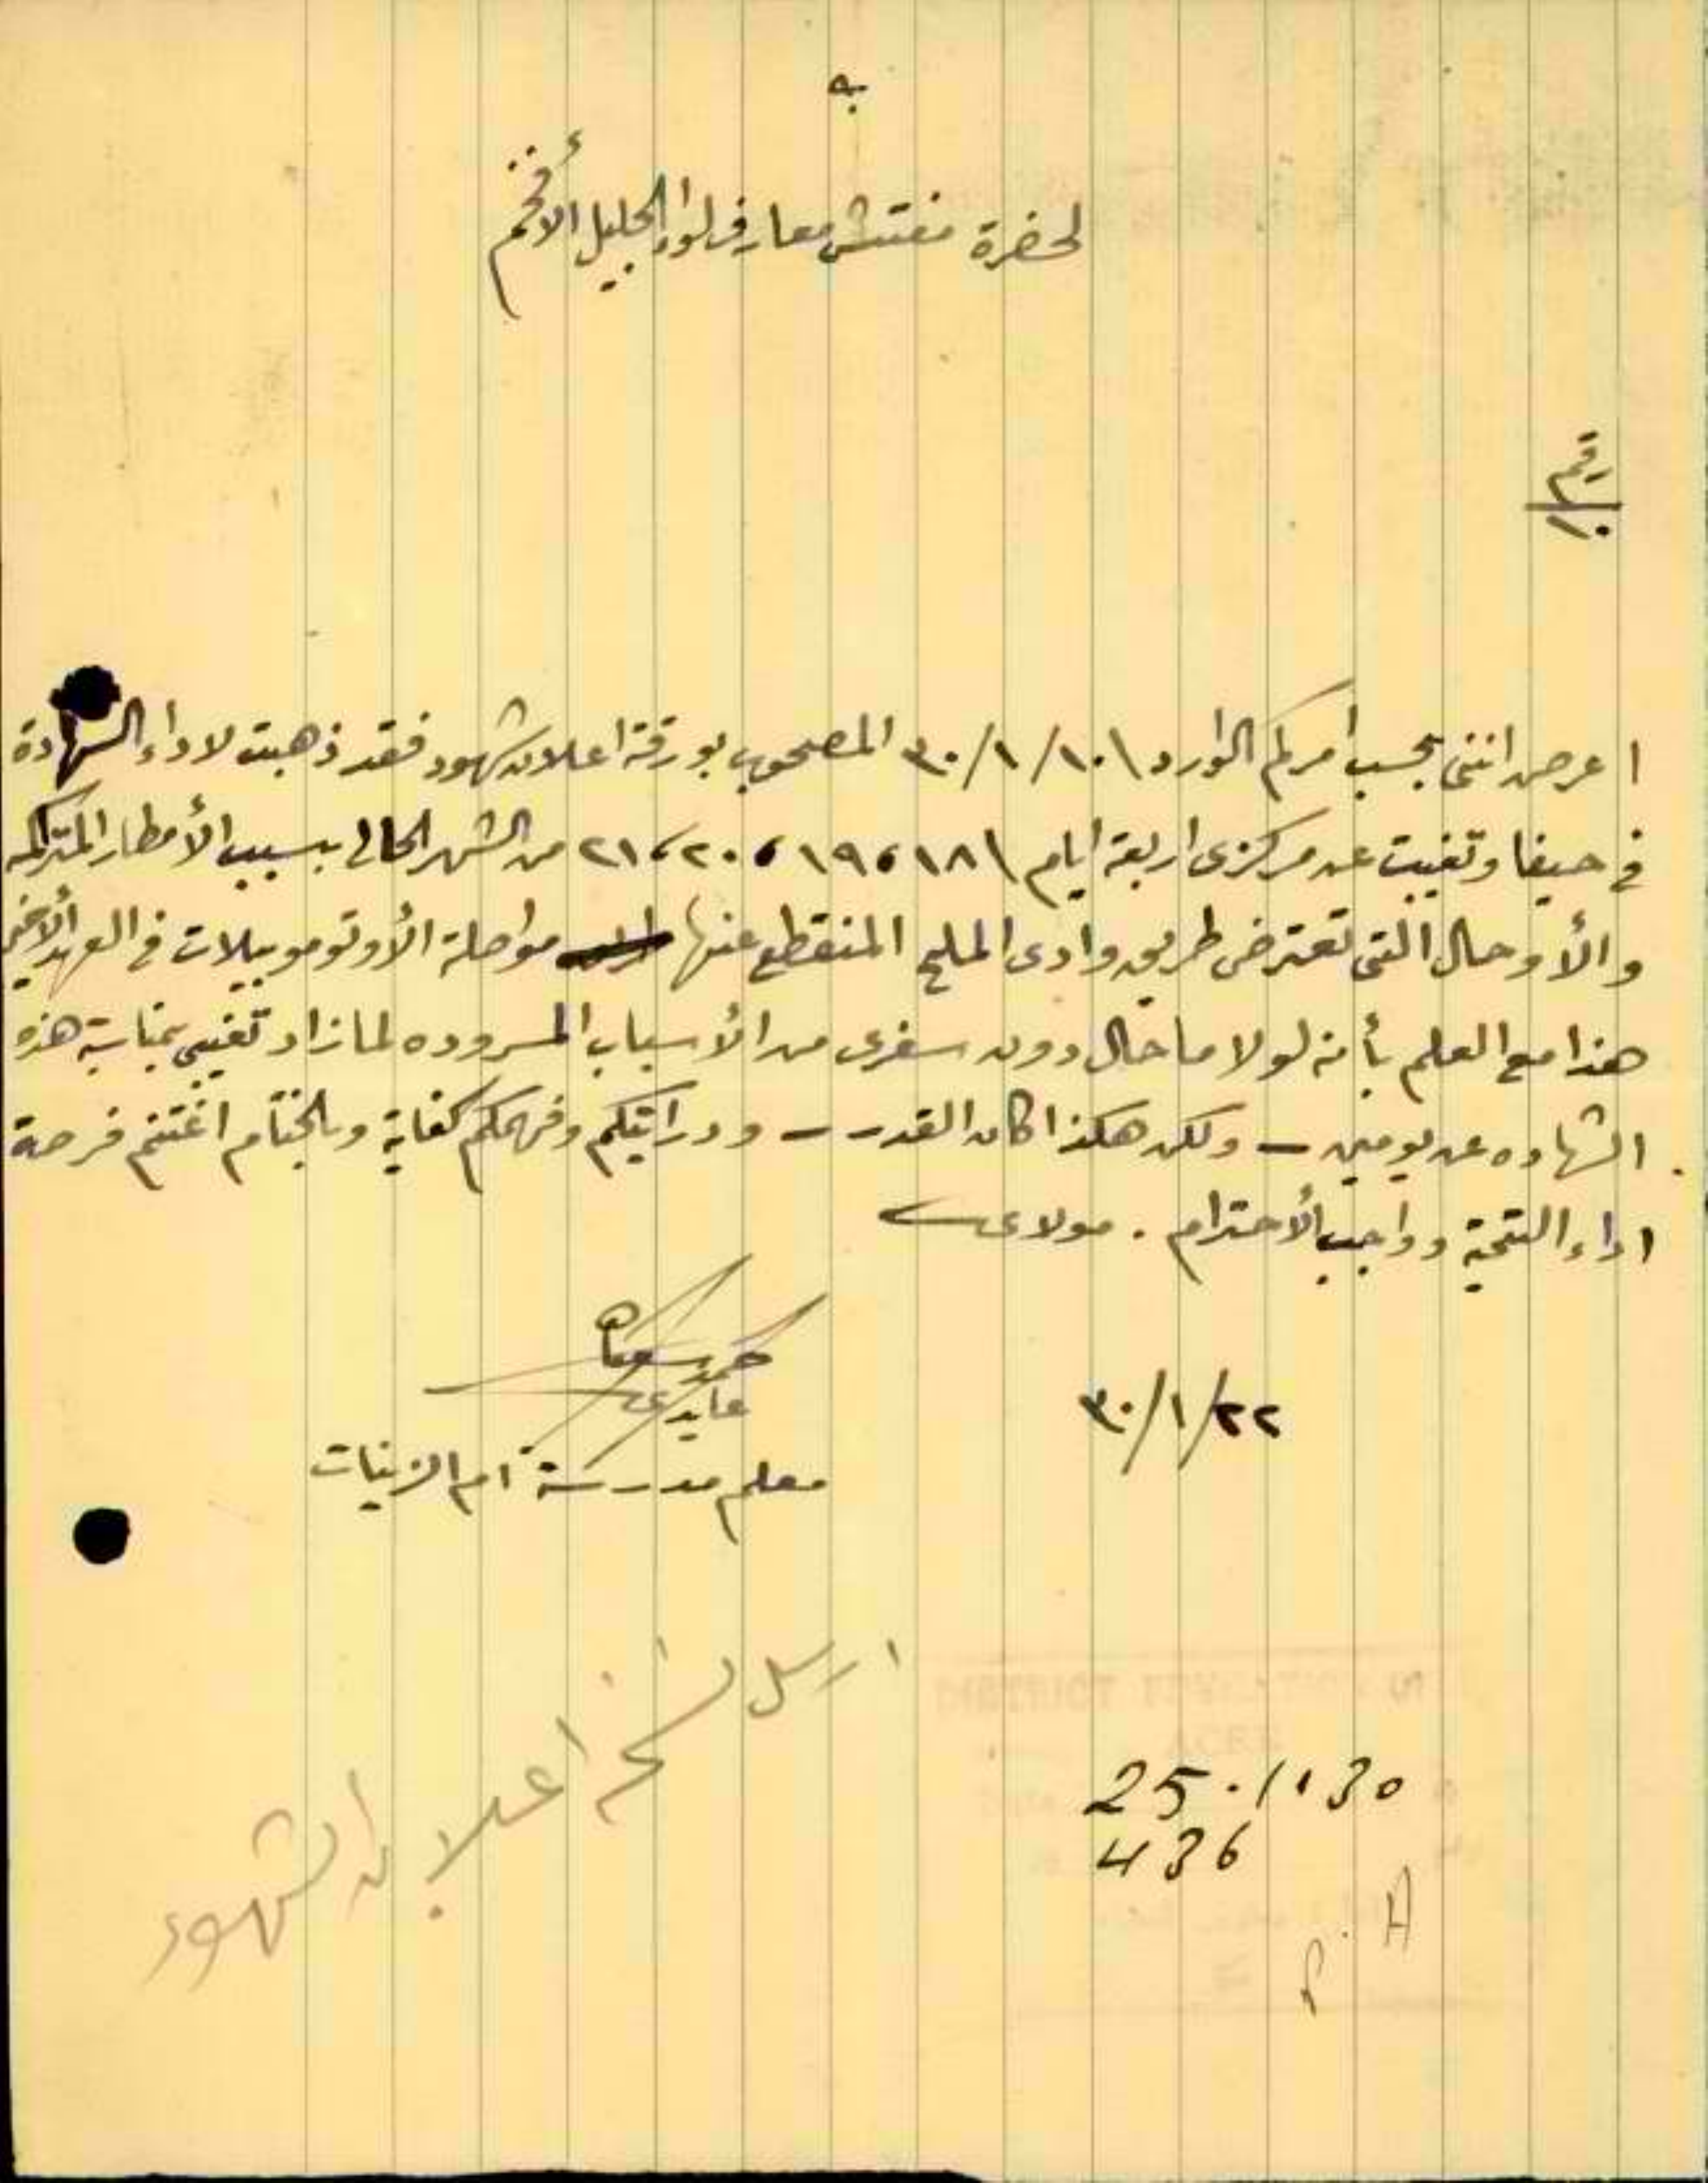 به
لحضرة مفتش معارف لواء الجليل الأفخم
رقم
١٠
اعرض انني بحسب أمركم الوارد ١٠/١/٣٠ المصحوب بورقة اعلان شهود فقد ذهبت لاداء الشهادة
في حيفا وتغيبت عن مركزى اربعة ايام ١٨، ١٩، ٢٠، ٢١ من الشهر الحالي بسبب الأمطار المتراكمه
والأوحال التى تعترض طريق وادى الملح المنقطع عنها مواصلة الأوتوموبيلات في العهد الأخير
هذا مع العلم بأنه لولا ما حال دون سفرى من الأسباب المسروده لما زاد تغيبى بمناسبة هذه
الشهاده عن يومين — ولكن هكذا كان القدر — ودرايتكم وفهمكم كفاية وبالختام اغتنم فرصة
اداء التحية وواجب الأحترام . مولاى
عابدى
٢٢/١/٣٠
معلم مدرسة ام الزينات
ارسل نسخ اعلان الشهود
25.1.30
436